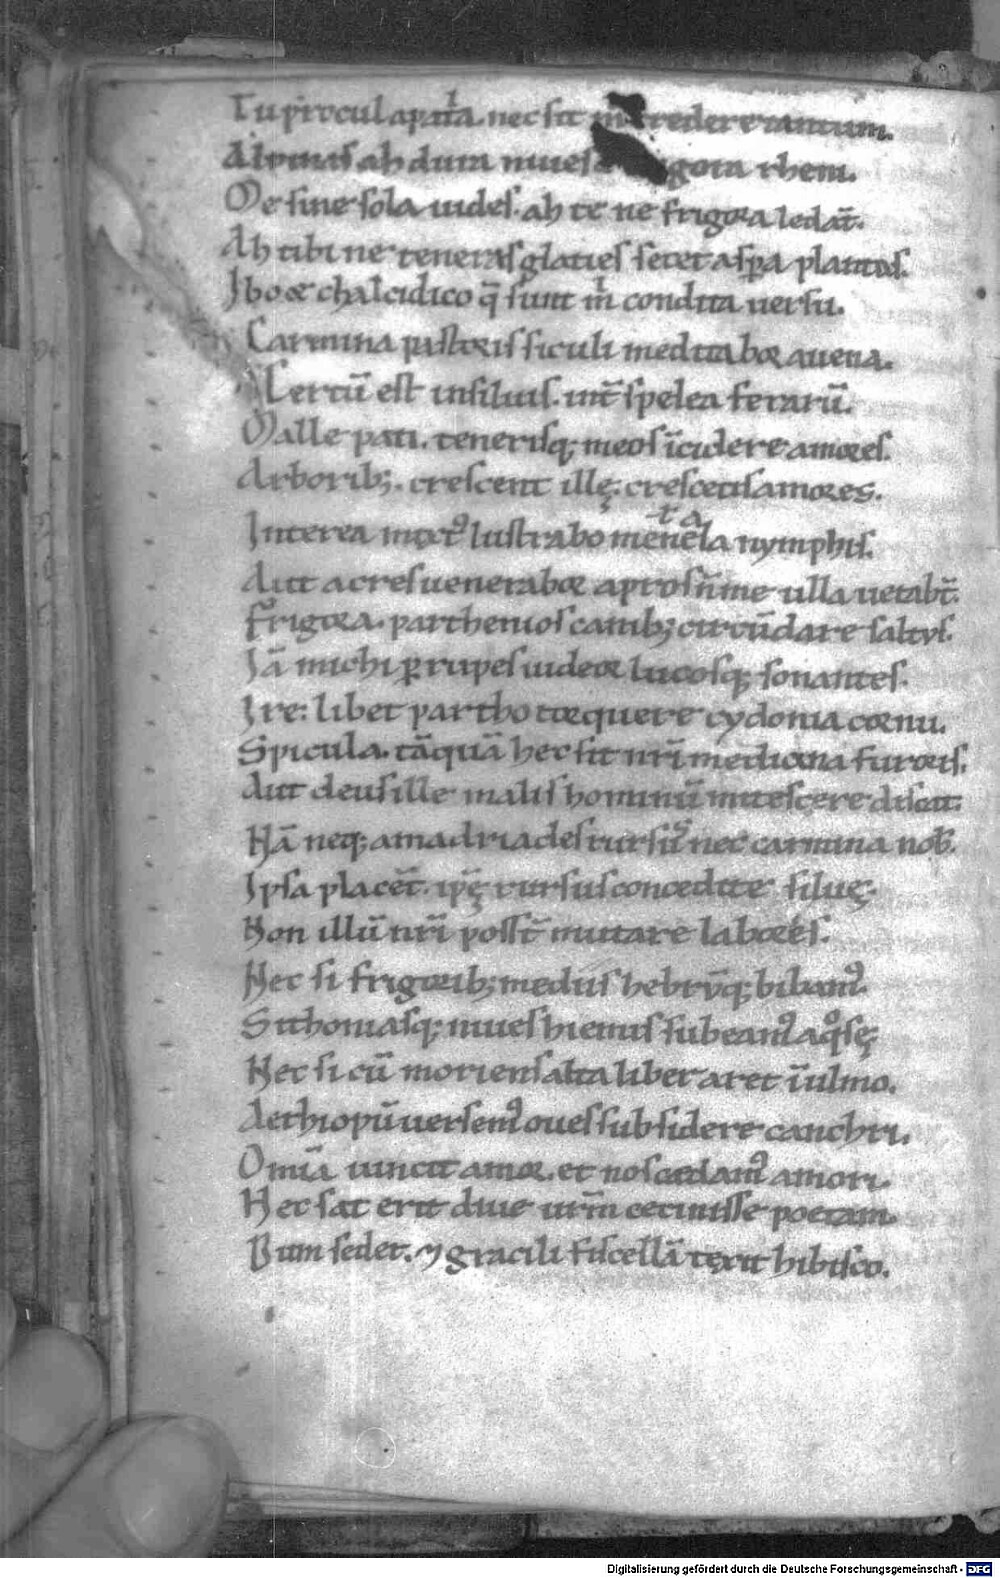 Tu procul a patria. nec sit m credere tantum.
Alpinas ah dura niues gora rheni.
Me sine sola uides. ah te ne frigora ledāt.
Ah tibi ne teneras glaties secet aspa plantas.
Ibo & chalcidico q̄ sunt m condita uersu.
Carmina pastoris siculi meditabor auena.
Certū est in siluis. int̄ spelea ferarū.
Malle pati. tenerisq; meos īcidere amores.
Arborib;. crescent illę. crescetis amores.
Interea mixt᷒ lustrabo menela nymphis.
Aut acres uenerabor apros n̄ me ulla uetabt̄.
Frigora. parthenios canib; circūdare saltus.
Iā michi ꝑ rupes uideor lucosq; sonantes.
Ire: libet partho torquere cydonia cornu.
Spicula. tāquā hec sit nr̄i medicina furoris.
Aut deus ille malis hominū mitescere discat.
Nā neq; amadriades rursū nec carmina nob̄.
Ipsa placēt. ip̄ę rursus concedite siluę.
Non illū nr̄i posst̄ mutare labores.
Nec si frigorib; mediis hebrūq; bibam᷒.
Sithoniasq; niues hiemis subeam᷒ aq̊sę.
Nec si cū moriens alta liber aret ī ulmo.
Aethiopū uersem᷒ oues sub sidere canchri.
Omīa uincit amor. et nos cedam᷒ amori.
Hec sat erit diue ur̄m cecinisse poetam.
Dum sedet. & gracili fiscellā texit hibisco.
Digitalisierung gefördert durch die Deutsche Forschungsgemeinschaft - DFG